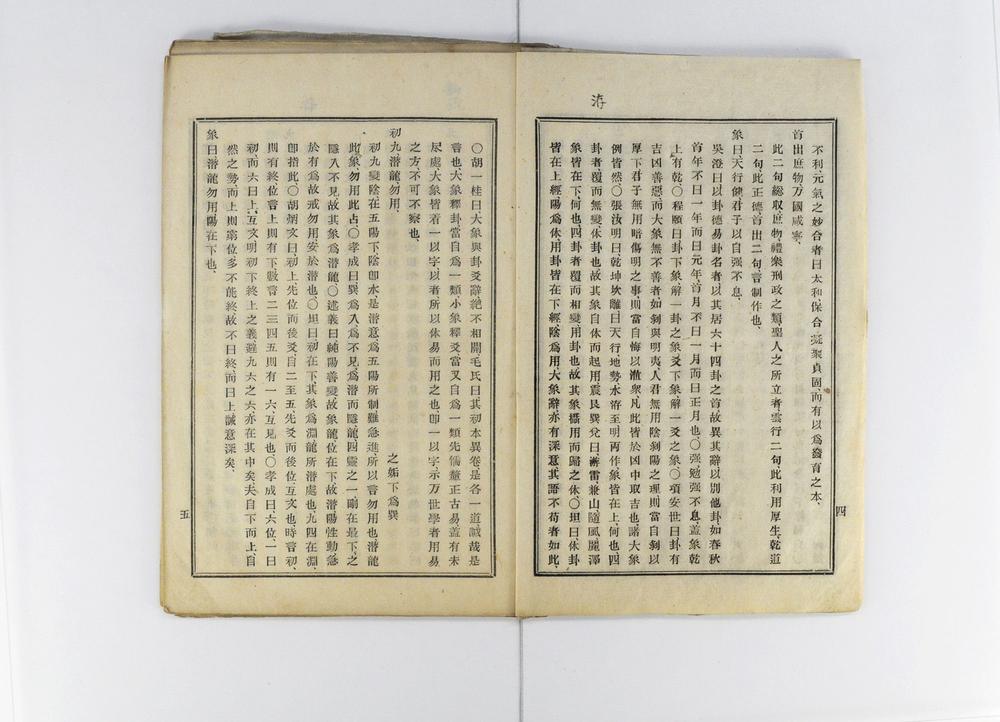 洊
不利、元氣之妙合者曰太和、保合、凝聚貞固、而有以爲發育之本、
首出庶物、万國咸寧、
此二句、總取庶物、禮樂刑政之類、聖人之所立者、雲行二句、此利用厚生、乾道
二句、此正德、首出二句、言制作也、
象曰、天行健、君子以自强不息、
吳澄曰、以卦德易卦名者、以其居六十四卦之首、故異其辭、以別他卦、如春秋
首年不曰一年、而曰元年、首月不曰一月、而曰正月也、〇强、勉强不息、蓋象乾
上有乾、〇程頤曰、卦下象、解一卦之象、爻下象、解一爻之象、〇項安世曰、卦有
吉凶善惡、而大象無不善者、如剝與明夷、人君無用陰剝陽之理、則當自剝以
厚下、君子無用暗傷明之事、則當自晦以涖衆、凡此皆於凶中取吉也、諸大象
例皆然、〇張汝明曰、乾坤坎離、曰天行地勢水洊至明兩作、象皆在上、何也、四
卦者覆而無變、体卦也、故其象自体而起用、震艮巽兌曰洊雷兼山隨風麗澤
象皆在下、何也、四卦者覆而相變、用卦也、故其象攝用而歸之体、〇坦曰、体卦
皆在上經、陽爲体、用卦皆在下經、陰爲用、大象辭亦有深意、其語不苟者如此、
四
〇胡一桂曰、大象與卦爻辭、絕不相關、毛氏曰、其初本異卷、是各一道、誠哉是
言也、大象釋卦、當自爲一類、小象釋爻、當又自爲一類、先儒釐正古易、蓋有未
尽處、大象皆着一以字、以者所以体易而用之也、即一以字、示万世學者用易
之方、不可不察也、
初九、潛龍勿用、 之姤下爲巽
初九變、陰在五陽下、陰卽水、是潛意、爲五陽所制、難急進、所以言勿用也、潛龍
此象、勿用此占、〇孝成曰、巽爲入、爲不見、爲潛而隱、龍四靈之一、剛在最下、之
隱入不見、故其象爲潛龍、〇述義曰、純陽善變、故象龍、位在下、故潛、陽性動、急
於有爲、故戒勿用、安於潛也、〇坦曰、初在下、其象爲淵、龍所潛處也、九四在淵、
卽指此、〇胡炳文曰、初上先位而後爻、自二至五、先爻而後位、互文也、時言初、
則有終、位言上、則有下、數言二三四五、則有一六、互見也、〇孝成曰、六位一曰
初、而六曰上、互文明初下終上之義、避九六之六、亦在其中矣、夫自下而上、自
然之勢、而上則窮位、多不能終、故不曰終、而曰上、誠意深矣、
象曰、潛龍勿用、陽在下也、
五